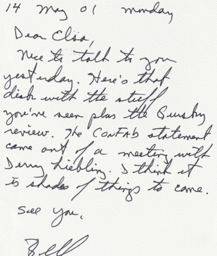 14 May 01 monday
Dear Elsa,
Nice to talk to you
yesterday. Here's that
disk with the stuff
you've seen plus the
review. The ConFAB statement
came out of a meeting with
Denny Liebling. I think it
is shades of things to come.
See you,
Bill